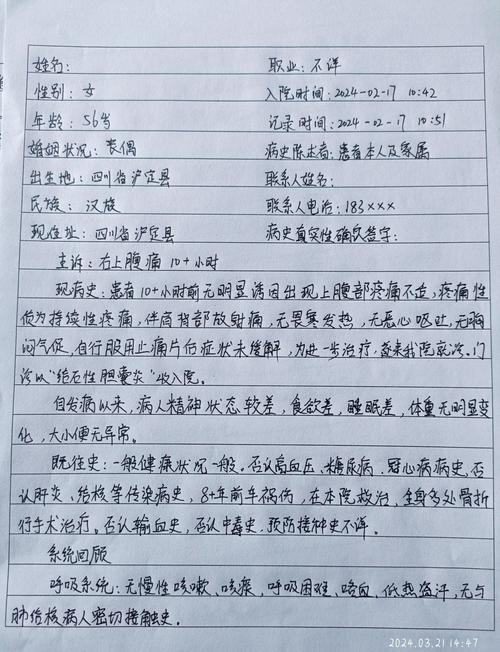 姓名： 职业：不详
性别：女 入院时间：2024-02-17 10:42
年龄：56岁 记录时间：2024-02-17 10:51
婚姻状况：丧偶 病史陈述者：患者本人及家属
出生地：四川省泸定县 联系人姓名：
民族：汉族 联系人电话：183×××
现住址：四川省泸定县 病史真实性确认签字：
主诉：右上腹痛10+小时
现病史：患者10+小时前无明显诱因出现上腹部疼痛不适，疼痛性
质为持续性疼痛，伴肩背部放射痛，无畏寒发热，无恶心呕吐，无胸
闷气促，自行服用止痛片后症状未缓解，为进一步治疗，遂来我院就诊。门
诊以“结石性胆囊炎”收入院。
自发病以来，病人精神状态较差，食欲差，睡眠差，体重无明显变
化，大小便无异常。
既往史：一般健康状况一般，否认高血压、糖尿病、冠心病病史，否
认肝炎、结核等传染病史，8+年前车祸伤，在本院救治，全身多处骨折
行手术治疗。否认输血史，否认中毒史，预防接种史不详。
系统回顾
呼吸系统：无慢性咳嗽、咳痰，呼吸困难、咯血、低热盗汗，无与
肺结核病人密切接触史。
2024.03.21 14:47